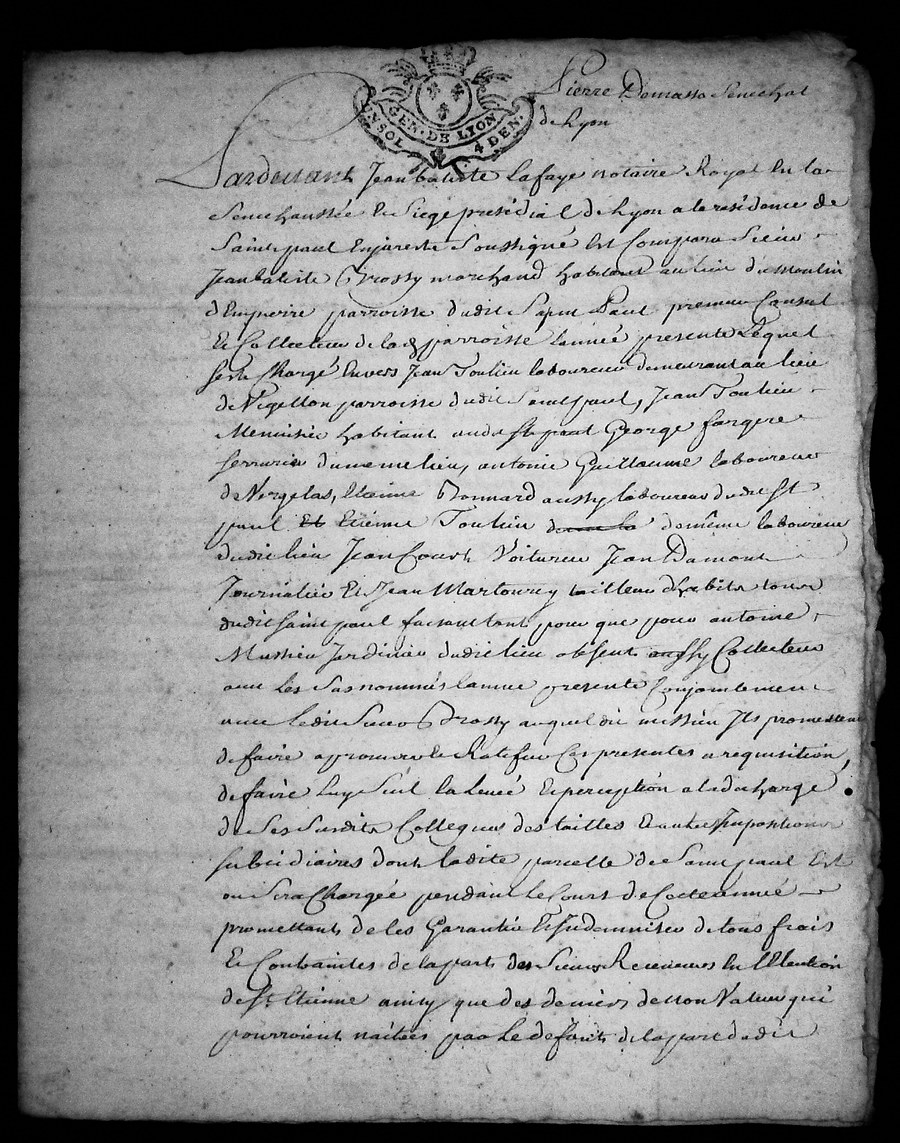 Pierre Domasso Senechal
de Lyon
GEN. DE LYON
UN SOL 4 DEN.
Pardevant Jean batiste Lafaye notaire Royal En la
Senechaussée et Siege presidial de Lyon a la residence de
Saint paul Enjarest Soussigné Est Comparu Sieur
Jean batiste Brossy marchand habitant au lieu du moulin
parroisse dudit Saint Paul premier Consul
Et Collecteur de lad parroisse lannée presente Lequel
sest Chargé Envers Jean Toulieu laboureur demeurant au lieu
de parroisse dudit Saint paul, Jean Toulieu
Menuisier habitant aud St paul George fargere
serrurier du meme lieu, antoine Guillaume laboureur
de Vergelas, Etienne Bonnard aussy laboureur dudit St
paul Et Etienne Toulieu de même laboureur
dudit lieu Jean Court Voiturier Jean Damont
Journalier Et Jean Martourey tailleur d'habits tous
dudit saint paul faisant tant pour que pour antoine
Massieu Jardinier dudit lieu absent aussy Collecteur
avec Les Susnommés lannée presente Conjointement
avec ledit Sieur Brossy auquel dit messieu Ils promettent
de faire approuver et Ratifier Ces presentes a requisition,
de faire Luy Seul La Levée Et perception a la decharge
de Ses Susdits Collegues des tailles Et autres Impositions
subsidiaires dont ladite parcelle de Saint paul Est
ou Sera Chargée pendant le Court de Cette année
promettant de les Garantir Et Indemniser de tous frais
Et Contraintes de la part des Sieurs Receveurs En l'Election
de St Etienne ainsy que des deniers de non Valeur qui
pourroient naitres par Le defaut de la part dudit